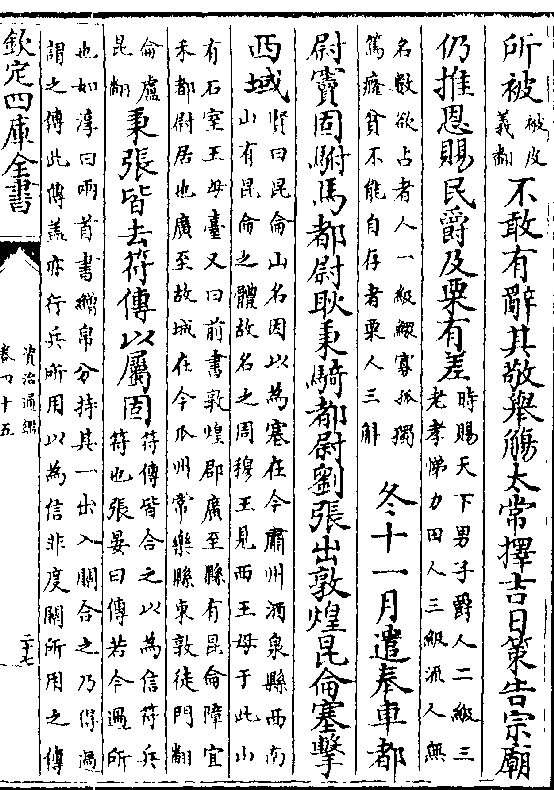 所被被皮義翻不敢有辭其敬舉觴太常擇吉日策告宗廟
仍推恩賜民爵及粟有差時賜天下男子爵人二級三老孝悌力田人三級流人無
名數欲占者人一級鰥寡孤獨篤癃貧不能自存者粟人三斛冬十一月遣奉車都
尉竇固駙馬都尉耿秉騎都尉劉張出敦煌昆侖塞擊
西域賢曰昆侖山名因以為塞在今肅州酒泉縣西南山有昆侖之體故名之周穆王見西王母于此山
有石室王母臺又曰前書敦煌郡廣至縣有昆侖障宜禾都尉居也廣至故城在今瓜州常樂縣東敦徒門翻
侖盧昆翻秉張皆去符傳以屬固符傳皆合之以為信符兵符也張晏曰傳若今過所
也如淳曰兩首書繒帛分持其一出入關合之乃得過謂之傳此傳蓋亦行兵所用以為信非度關所用之傳
欽定四庫全書
資治通鑑
卷四十五
二十七